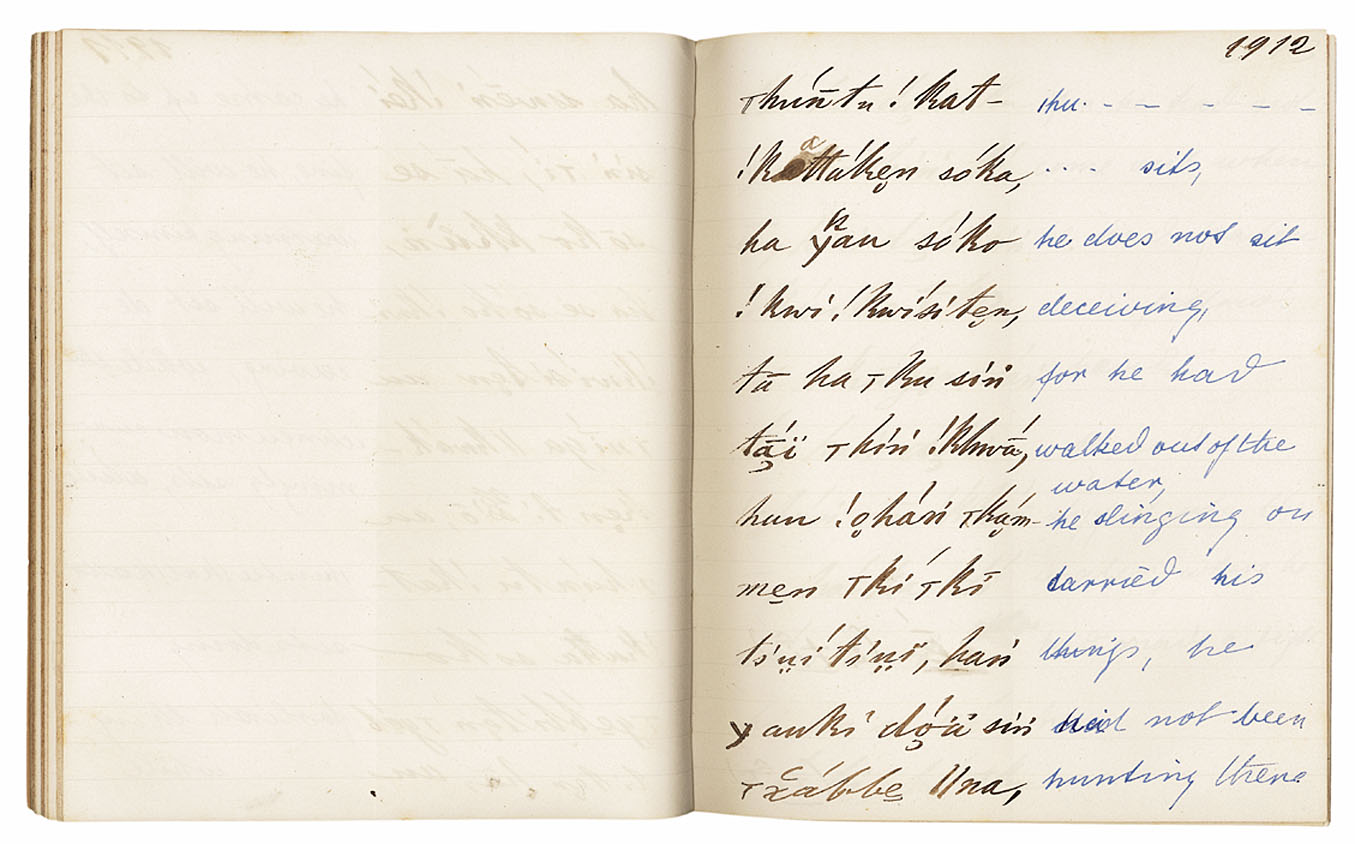 1912
⊤huń̄tu! kat- thu. - - - - -
!kăttáken̥ sóka, . . . sits,
ha y̆au sóko he does not sit
!kwi!kwísite̥n, deceiving,
tā ha ⊤ku siń for he had
tḁ̄́ï ⊤hiń !khwā́, walked out of the
water,
hań !o̥hań ⊤kṵ́m- he slinging on
me̱n ⊤kí⊤kī carried his
tṣíṇ̈ítíṇ̈ī, hań things, he
yauki dó̥ä siń had not been
⊤x̆ábbe̱ ǁna, hunting there